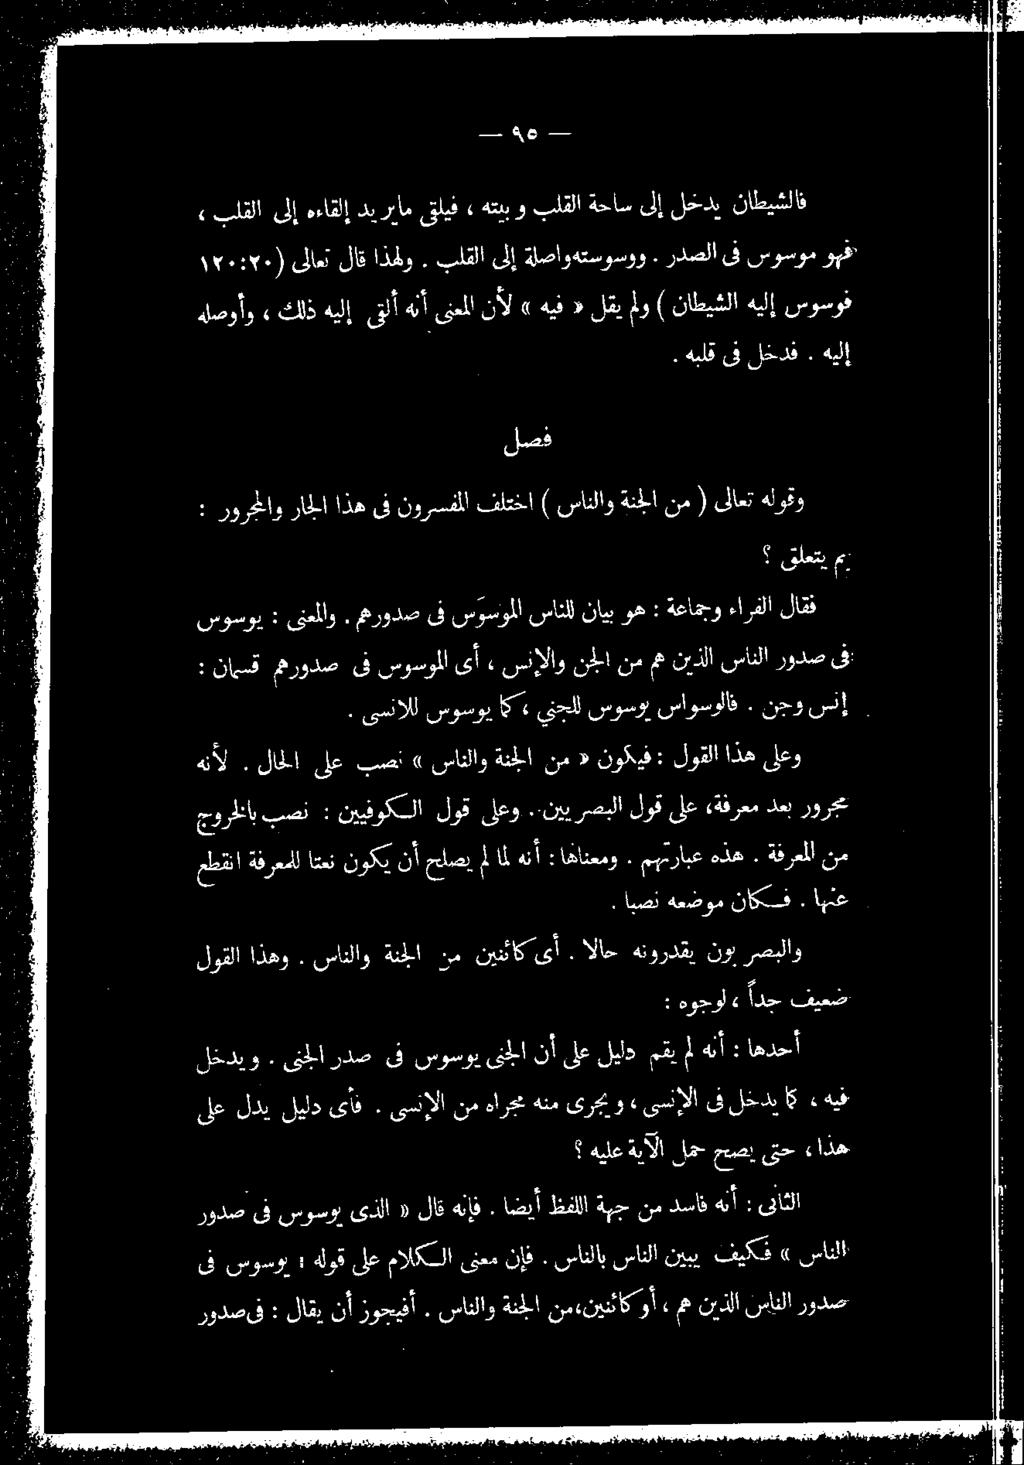 — ٩٥ —
فالشيطان يدخل إلى ساحة القلب وبيته ، فيلقى مايريد إلقاءه إلى القلب ،
فهو موسوس فى الصدر . ووسوسته واصلة إلى القلب . ولهذا قال تعالى ( ٢٠ : ١٢٠
فوسوس إليه الشيطان ) ولم يقل « فيه » لأن المعنى أنه ألقى إليه ذلك ، وأوصله
إليه . فدخل فى قلبه .
فصل
وقوله تعالى ( من الجنة والناس ) اختلف المفسرون فى هذا الجار والمجرور :
بم يتعلق ؟
فقال الفراء وجماعة : هو بيان للناس الموسوَس فى صدورهم . والمعنى : يوسوس
فى صدور الناس الذين هم من الجن والإنس ، أى الموسوس فى صدورهم قسمان :
إنس وجن . فالوسواس يوسوس للجنى ، كما يوسوس للانسى .
وعلى هذا القول : فيكون « من الجنة والناس » نصب على الحال . لأنه
مجرور بعد معرفة ، على قول البصريين . وعلى قول الكوفيين : نصب بالخروج
من المعرفة . هذه عبارتهم . ومعناها : أنه لما لم يصلح أن يكون نعتا للمعرفة انقطع
عنها . فكان موضعه نصبا .
والبصريون يقدرونه حالا . أى كائنين من الجنة والناس . وهذا القول
ضعيف جداً ، لوجوه :
أحدها : أنه لم يقم دليل على أن الجنى يوسوس فى صدر الجنى . ويدخل
فيه ، كما يدخل فى الإنسى ، ويجرى منه مجراه من الإنسى . فأى دليل يدل على
هذا ، حتى يصح حمل الآية عليه ؟
الثانى : أنه فاسد من جهة اللفظ أيضا . فإنه قال « الذى يوسوس فى صدور
الناس » فكيف يبين الناس بالناس . فإن معنى الكلام على قوله : يوسوس فى
صدور الناس الذين هم ، أو كائنين ، من الجنة والناس . أفيجوز أن يقال : فى صدور